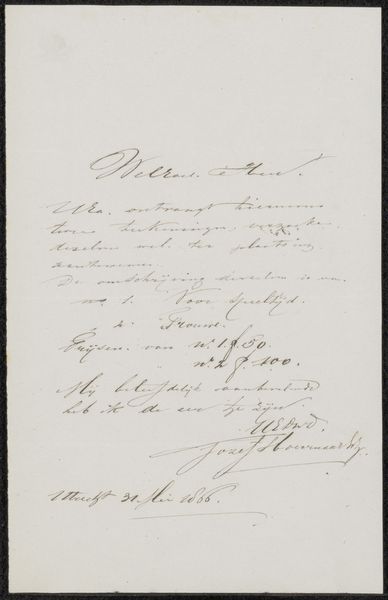 Weled. Heer
UEd. ontvangt hiernevens
twee teekeningen, verzoeke
dezelve wel ter plaatsing
aantenemen.
De omschrijving dezelve is van
no 1. Voor speeltijd.
2. Trouwe.
Prijzen van No. 1. f 50.
No. 2 f. 100.
Mij beleefdelijk aanbevelende
heb ik de eer te zijn
UEDwd.
Jozef Hoevenaar
Utrecht 31 Mei 1866.